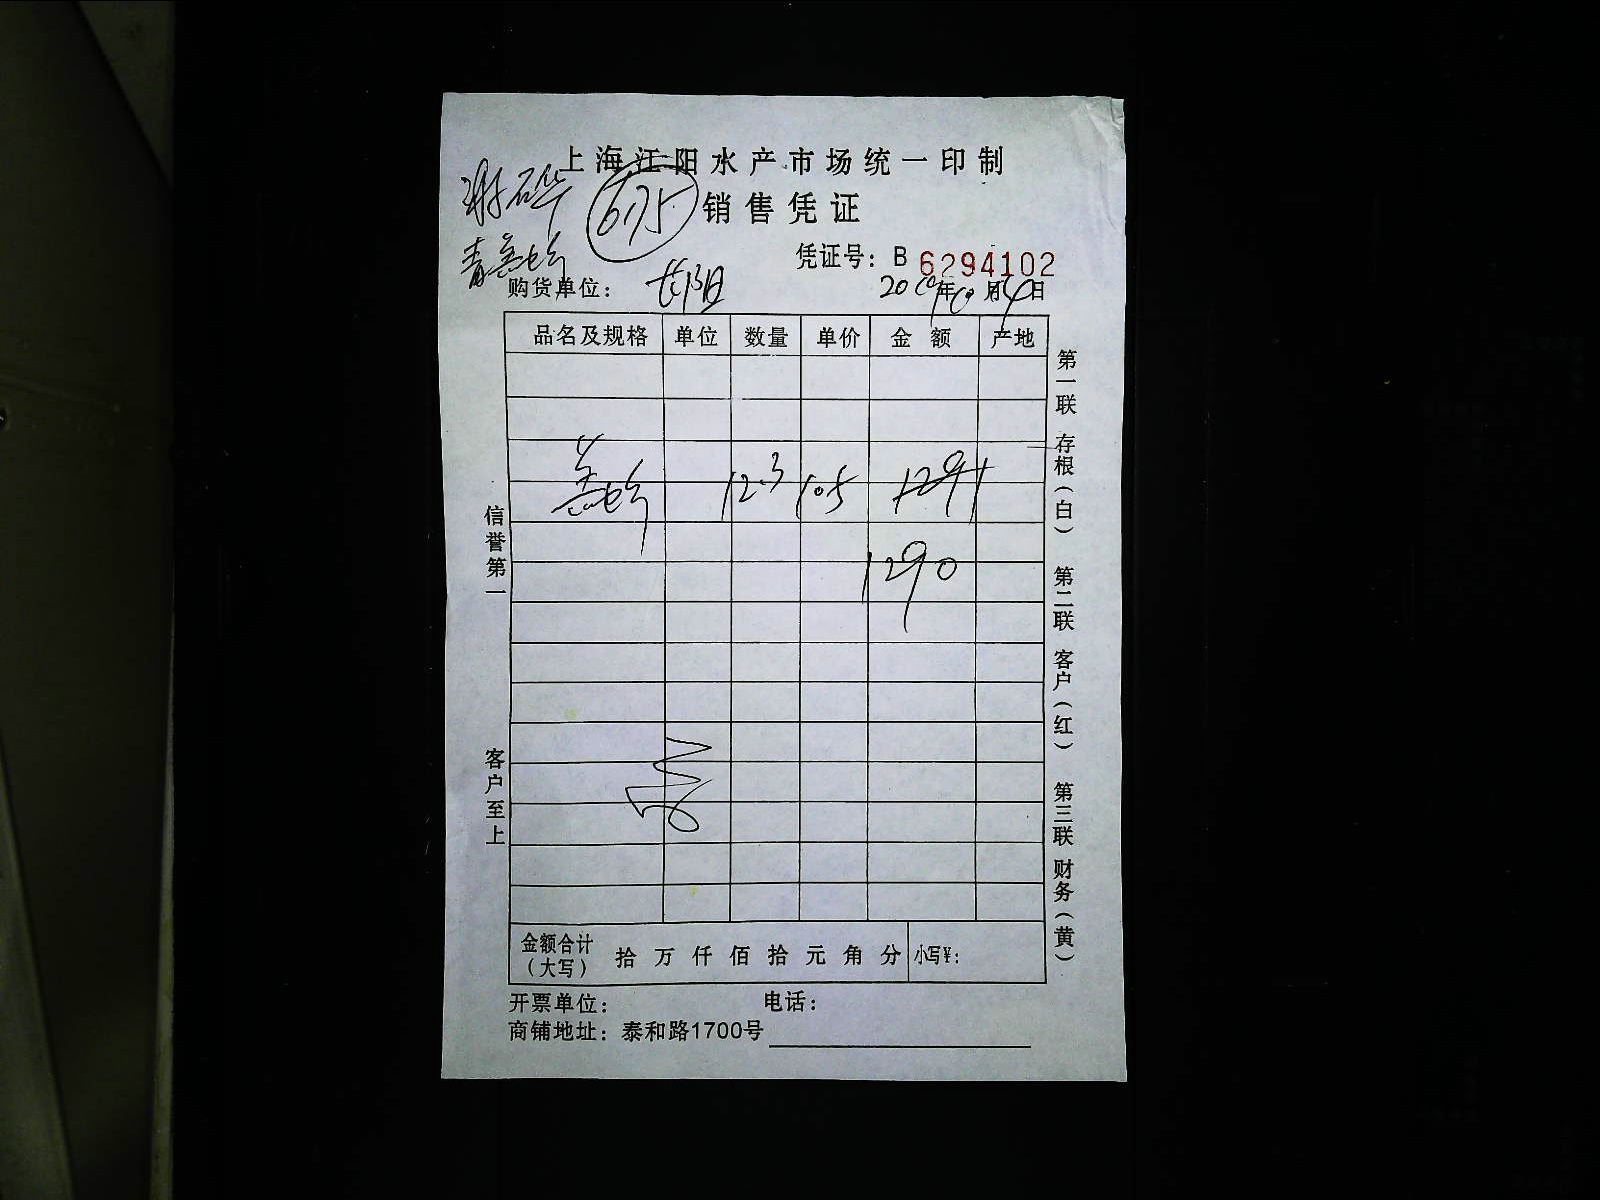 上海江阳水产市场统一印制
6175 销售凭证
凭证号：B 6294102
购货单位： 20 年 月 日
品名及规格 单位 数量 单价 金额 产地
12.3 105 1291
1290
金额合计（大写） 拾 万 仟 佰 拾 元 角 分 小写¥：
开票单位： 电话：
商铺地址：泰和路1700号
信誉第一 客户至上
第一联 存根（白） 第二联 客户（红） 第三联 财务（黄）